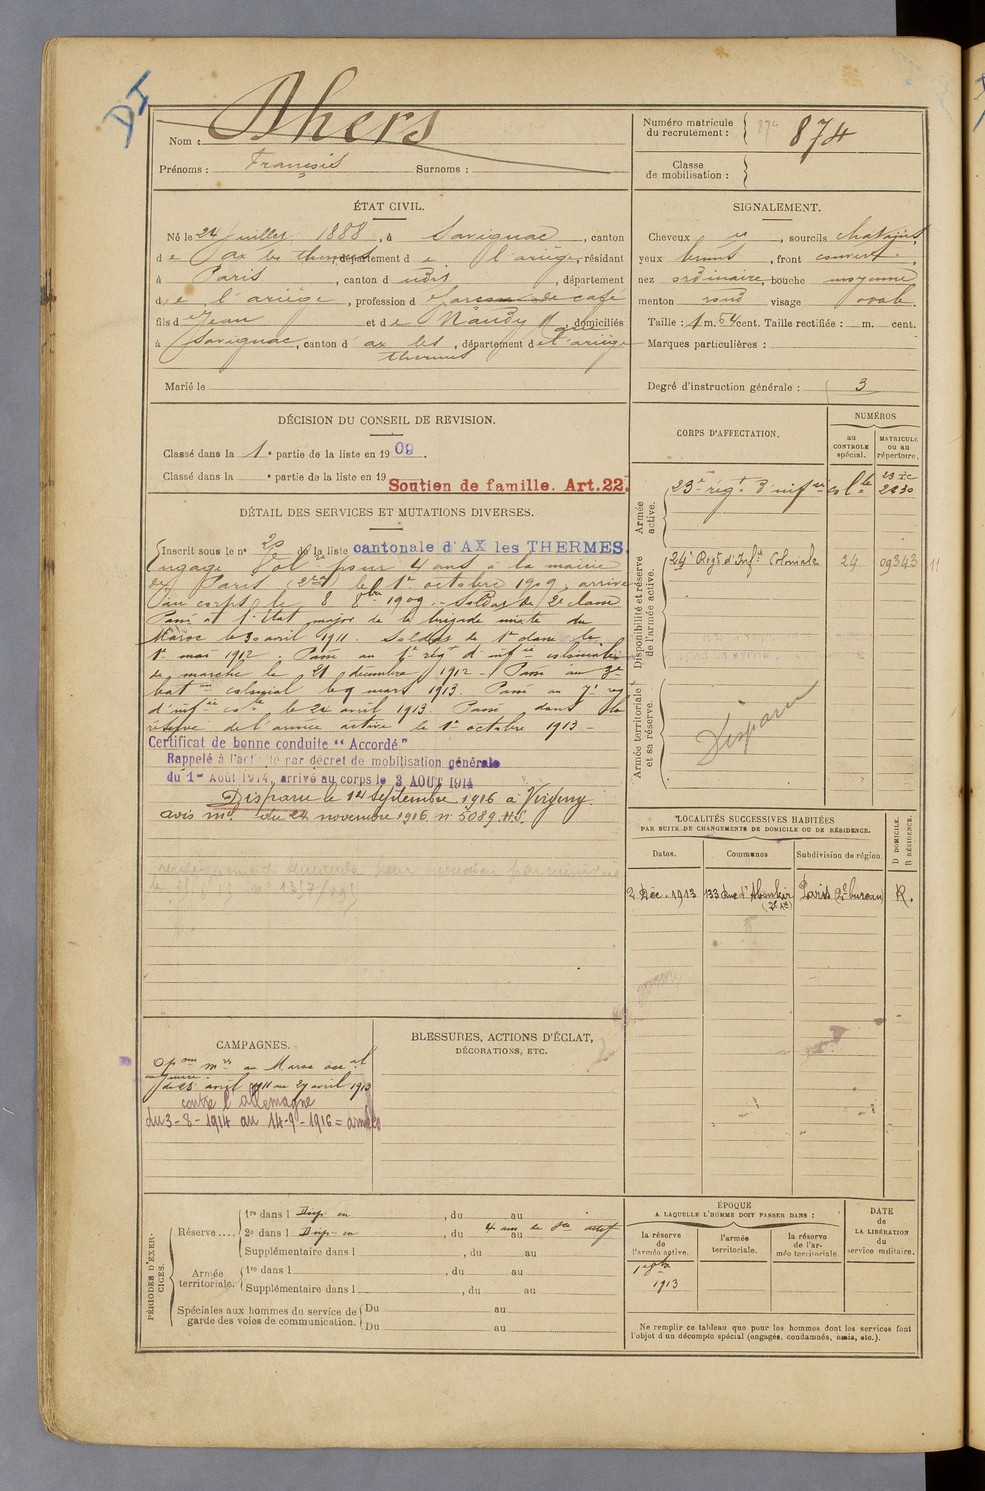 DI
Nom : Dhers
Prénoms : François Surnoms :
Numéro matricule du recrutement : 874 874
Classe de mobilisation :
ÉTAT CIVIL.
Né le 24 juillet 1888, à Savignac, canton
de Ax les thermes, département de l'ariège, résidant
à Paris, canton d udit, département
de l'ariège, profession de garcon de café
fils d Jean et de Naudy, domiciliés
à Savignac, canton d' ax les thermes, département de l'ariège
Marié le
SIGNALEMENT.
Cheveux et, sourcils chatains
yeux bruns, front couvert
nez ordinaire, bouche moyenne
menton rond visage oval
Taille : 1 m. 54 cent. Taille rectifiée : m. cent.
Marques particulières :
Degré d'instruction générale : 3
DÉCISION DU CONSEIL DE REVISION.
Classé dans la 1e partie de la liste en 1909.
Classé dans la e partie de la liste en 19
Soutien de famille. Art. 22.
DÉTAIL DES SERVICES ET MUTATIONS DIVERSES.
Inscrit sous le no 20 de la liste cantonale d'AX les THERMES.
Engagé vol. re pour 4 ans à la mairie
de Paris (2e ar.t) le 1er octobre 1909, arrivé
au corps le 8 8bre 1909. - Soldat de 2e classe
Passé à l'Etat major de la brigade mixte du
Maroc le 30 avril 1911. Soldat de 1e classe le
1er mai 1912 - Passé au 1er régt d'infrie coloniale
de marche le 21 décembre 1912 - Passé au 3e
baton colonial le 9 mars 1913. Passé au 7e reg
d'infrie cole le 24 avril 1913. Passé dans la
réserve de l'armée active le 1er octobre 1913 -
Certificat de bonne conduite "Accordé"
Rappelé à l'activité par décret de mobilisation générale
du 1er Août 1914, arrivé au corps le 3 AOUT 1914
Disparu le 14 Septembre 1916 à Virginy.
avis ml. du 24 novembre 1916 n° 5089.
CORPS D'AFFECTATION.
NUMÉROS
au CONTROLE spécial.
MATRICULE ou au répertoire.
Armée active.
23e régt d'infrie cole
23 IC
2230
Disponibilité et réserve de l'armée active.
24e Régt d'Infie Coloniale 24 09343 11
Armée territoriale et sa réserve.
Disparu
LOCALITÉS SUCCESSIVES HABITÉES
PAR SUITE DE CHANGEMENTS DE DOMICILE OU DE RÉSIDENCE.
D DOMICILE.
R RÉSIDENCE.
Dates. Communes Subdivision de région.
2 Déc. 1913 133 Rue d'Aboukir (2e Art) Paris (2e bureau) R.
CAMPAGNES.
Opons mres au Maroc occal
en guerre
du 25 avril 1911 au 27 avril 1913
contre l'allemagne
du 3-8-1914 au 14-9-1916 = armées
BLESSURES, ACTIONS D'ÉCLAT,
DÉCORATIONS, ETC.
PÉRIODES D'EXERCICES.
Réserve.... 1re dans l Disp. en, du au
2e dans l Disp. en, du 4 ans de au
Supplémentaire dans l, du au
Armée territoriale. 1re dans l, du au
Supplémentaire dans l, du au
Spéciales aux hommes du service de garde des voies de communication. Du au
Du au
ÉPOQUE
A LAQUELLE L'HOMME DOIT PASSER DANS :
la réserve de l'armée active.
l'armée territoriale.
la réserve de l'armée territoriale.
DATE de LA LIBÉRATION du service militaire.
1er 8bre
1913
Ne remplir ce tableau que pour les hommes dont les services font
l'objet d'un décompte spécial (engagés, condamnés, omis, etc.).